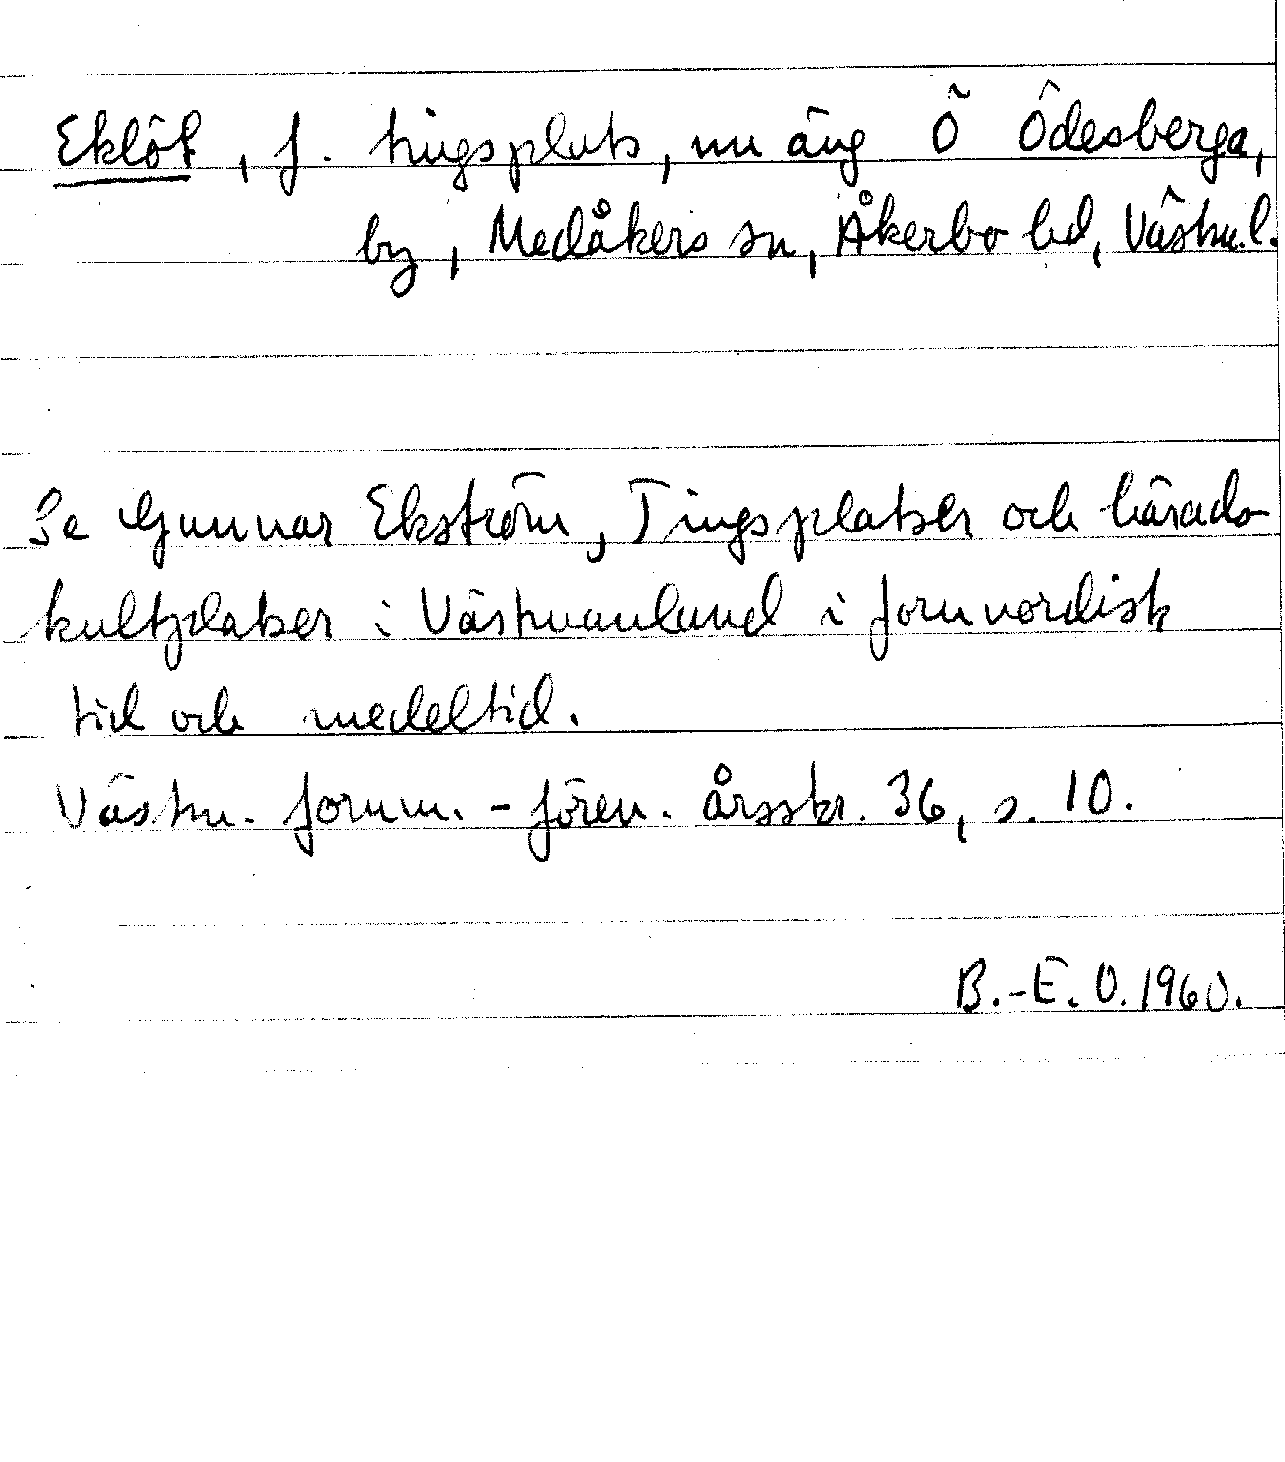 Eklöt, f. tingsplats, nu äng Ö Ödesberga,
by, Medåkers sn, Åkerbo hd, Västm.l.
Se Gunnar Ekström, Tingsplatser och härads-
kultplatser i Västmanland i fornnordisk
tid och medeltid.
Västm. fornm.-fören. årsskr. 36, s. 10.
B.-E. O. 1960.